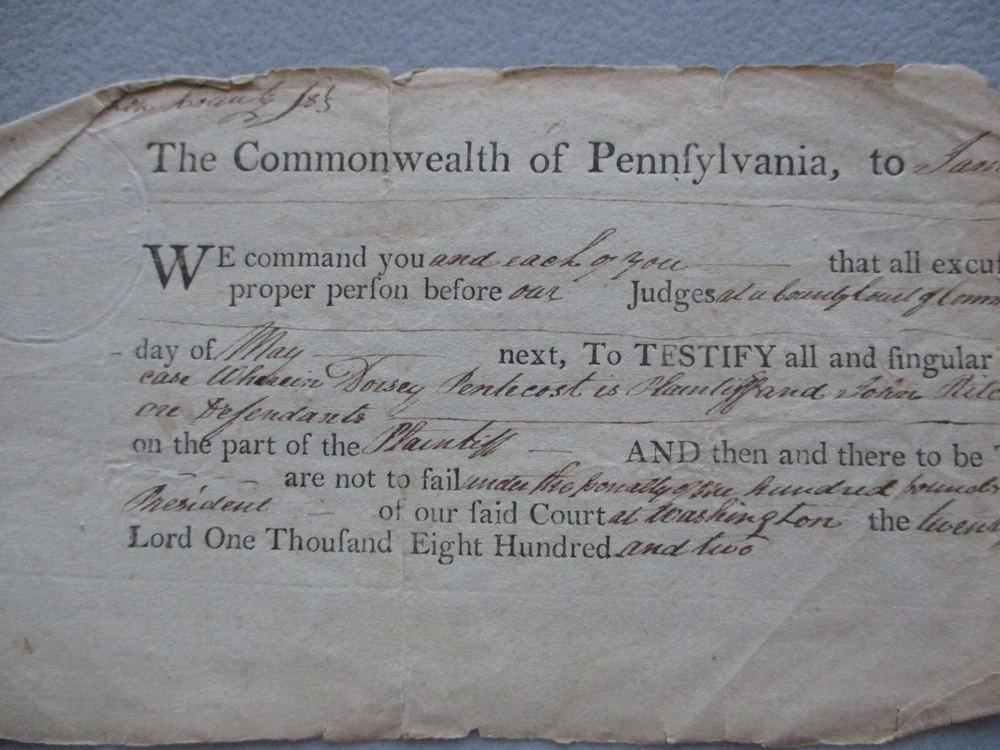 County ss
The Commonwealth of Pennſylvania, to
WE command you and each of you that all excuſ
proper perſon before our Judges at a County Court of Comm
day of May next, To TESTIFY all and ſingular
case Wherein Dorsey Pentecost is Plaintiff and John Ritc
are Defendants
on the part of the Plaintiff AND then and there to be
are not to fail under the penalty of one hundred pounds
President of our ſaid Court at Washington the twen
Lord One Thouſand Eight Hundred and two